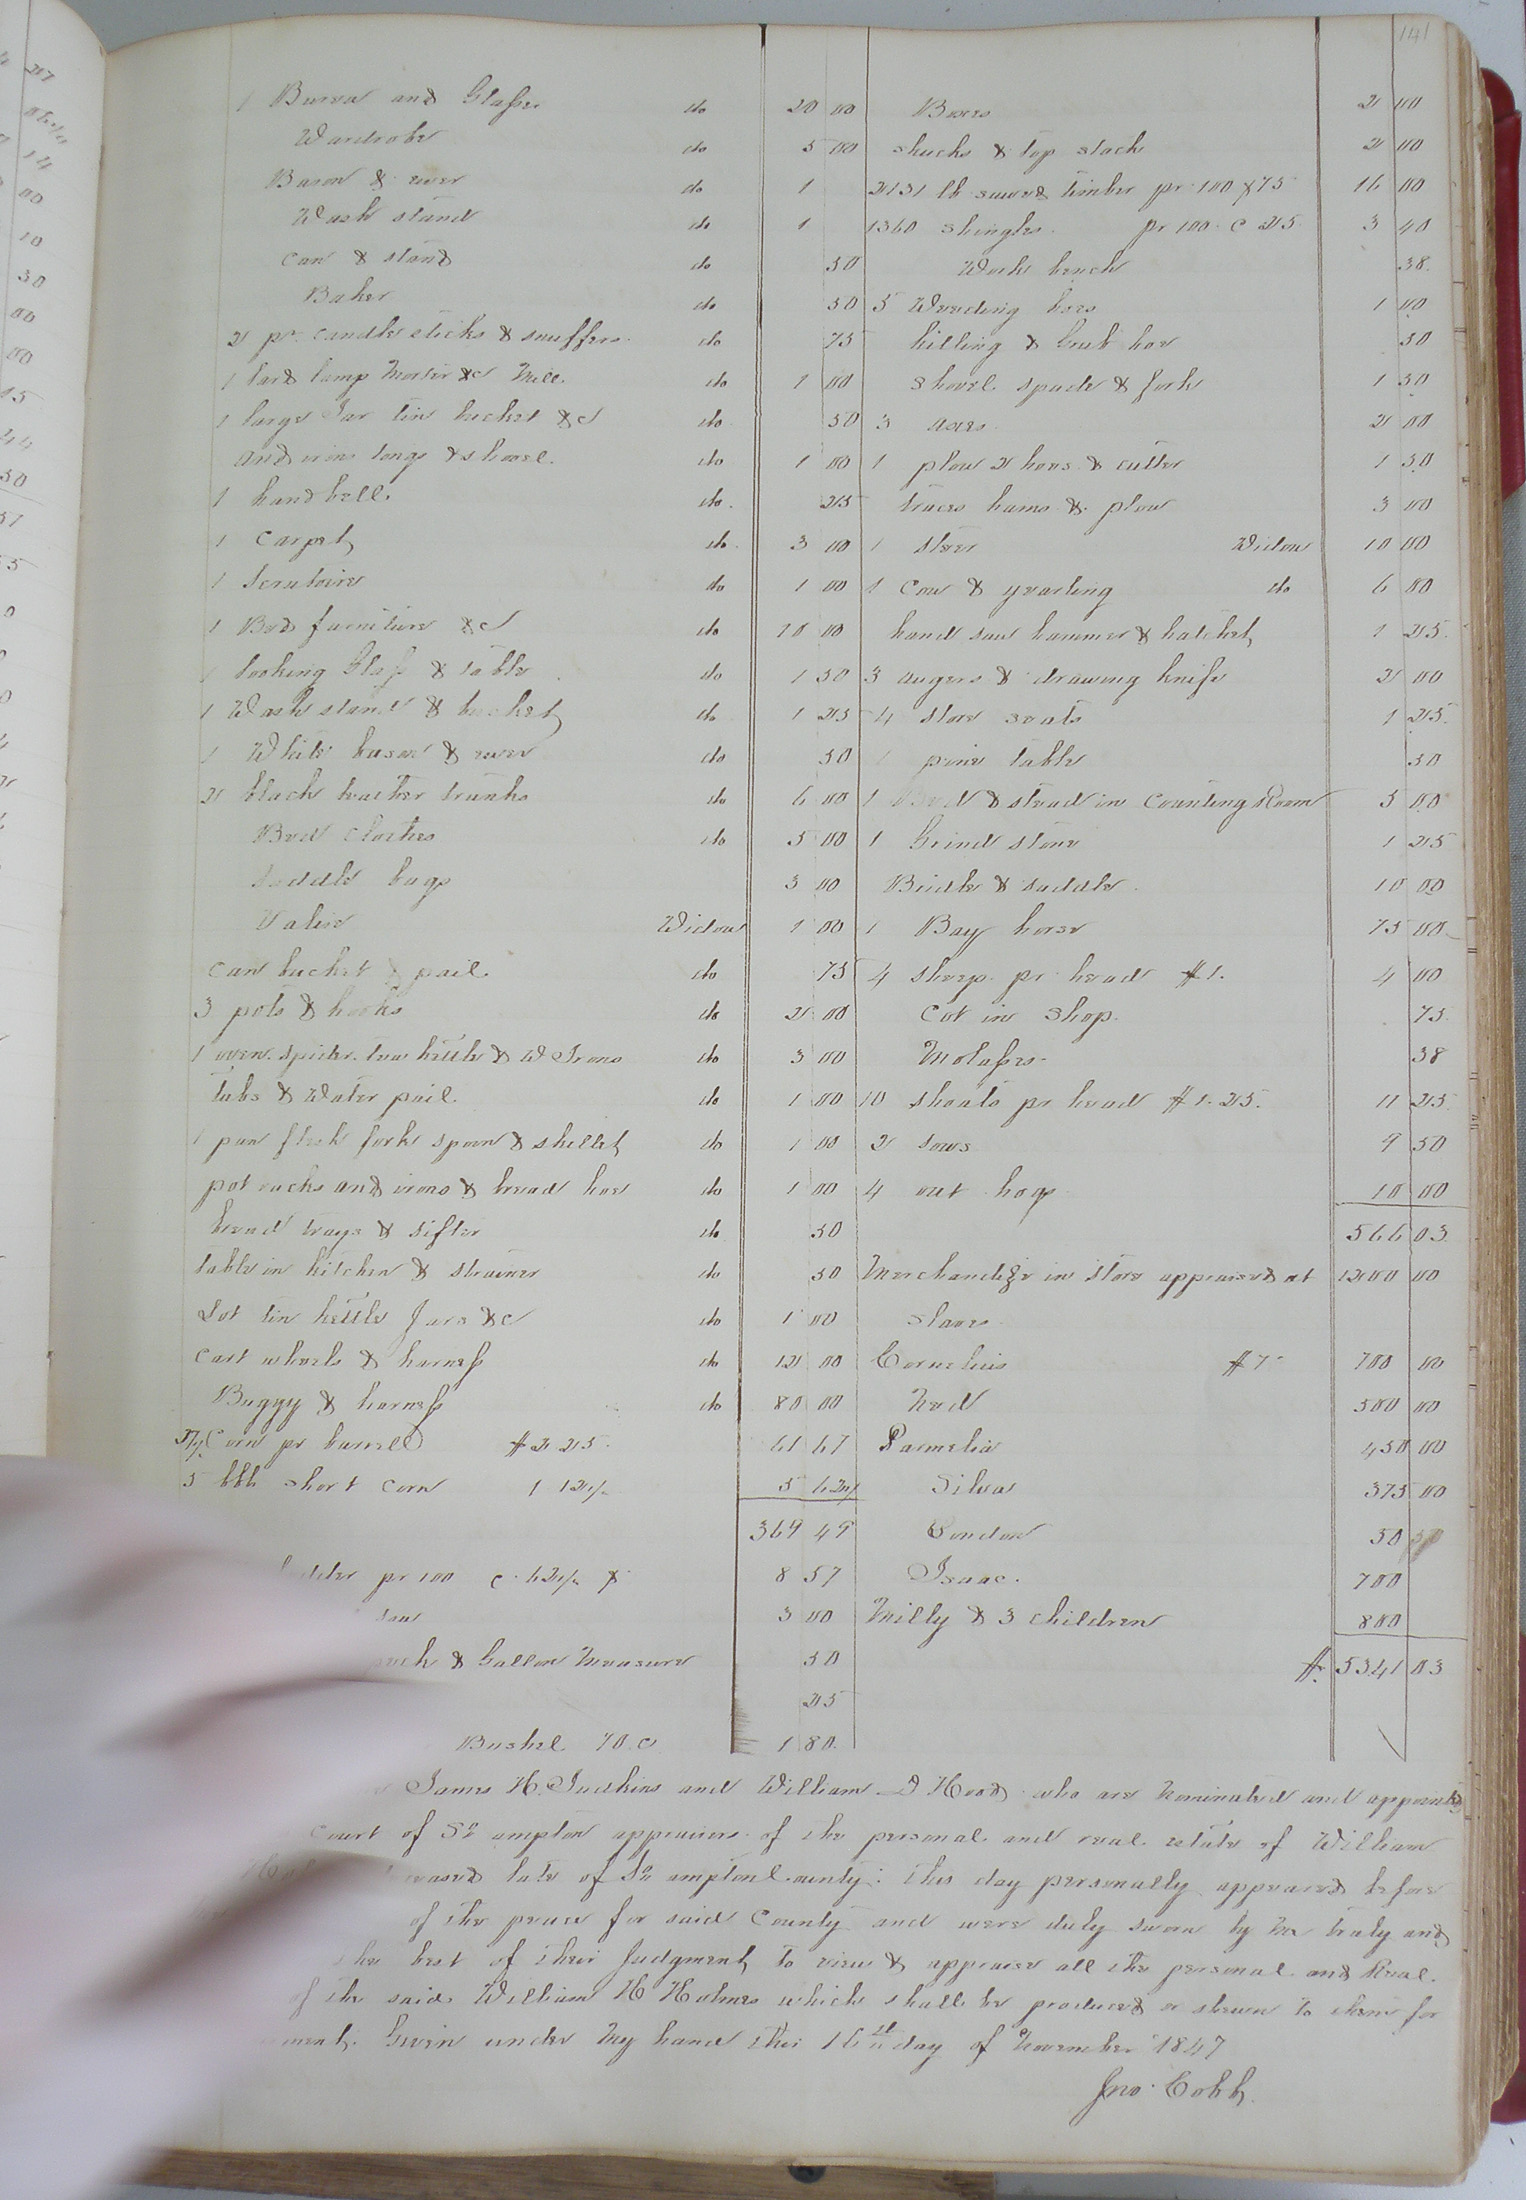 141
1 Bureau and Glasses do 20 00
Wardrobe do 5 00
Bason & ewer do 1
Wash stand do 1
can & stand do 50
Baker do 50
2 pr candle sticks & snuffers do 75
1 lard lamp Morter &c Mill do 1 00
1 large Jar tin bucket &c do 50
and irons tongs & shovel do 1 00
1 hand bell do 25
1 Carpet do 3 00
1 Scrutoire do 1 00
1 Bed furniture &c do 20 00
1 looking Glass & table do 1 50
1 Wash stand & bucket do 1 25
1 White bason & ewer do 50
2 black leather trunks do 6 00
Bed Clothes do 5 00
saddle bags 3 00
Valise Widow 1 00
can bucket & pail do 75
3 pots & hooks do 2 00
1 oven spider tea kettle & W Irons do 3 00
tubs & Water pail do 1 00
1 pan flesh fork spoon & skillet do 1 00
pot racks and irons & bread hoe do 1 00
bread trays & sifter do 50
table in kitchen & strainer do 50
Lot tin kettle Jars &c do 1 00
cart wheels & harness do 12 00
Buggy & harness do 80 00
Corn pr barrell $2 25 61 67
5 bbls short corn 1 12½ 5 62½
369 49
pr 100 c 62½ 8 57
3 00
& Gallon Measure 50
25
Bushel 70 c 1 80
Boxes 2 00
shucks & top stack 2 00
2131 lb sawed timber pr 100 $75 16 00
1360 shingles pr 100 c 25 3 40
Work bench 38
5 Weeding hoes 1 00
hilling & Grub hoe 50
shovel spade & fork 1 50
3 axes 2 00
1 plow 2 hoes & cutter 1 50
traces hams & plow 3 00
1 steer Widow 10 00
1 Cow & yearling do 6 00
hand saw hammer & hatchet 1 25
3 augers & drawing knife 2 00
4 store seats 1 25
1 pine table 50
1 Bed & stead in Counting Room 5 00
1 Grind stone 1 25
Bridle & saddle 10 00
1 Bay horse 75 00
4 sheep pr head $1. 4 00
Cot in Shop 75
Molasses 38
10 shoats pr head $1.25 11 25
2 sows 9 50
4 out hogs 10 00
566 03
Merchandize in store appraised at 1200 00
slaves
Cornelius 700 00
Ned 500 00
Parmelia 450 00
Silva 375 00
50
Isaac 700
Milly & 3 children 800
$ 5341 03
James H. Judkins and William D Hood who are nominated and appointed
Court of So ampton appraisers of the personal and real estate of William
late of So ampton County: this day personally appeared before
of the peace for said County and were duly sworn by me truly and
the best of their Judgment, to view & appraise all the personal and Real
of the said William H Holmes which shall be produced or shewn to them for
Given under My hand this 16th day of November 1847
Jno. Cobb